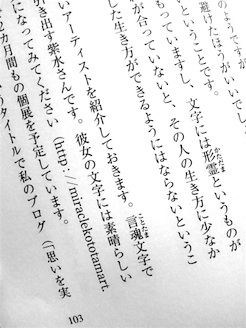 のようですが、
避けたほうがいいでし
ということです。
もっていますし、文字には形霊というものが
が合っていないと、その人の生き方に少なか
した生き方ができるようにはならないというこ
いアーティストを紹介しておきます。言魂文字で
き出す紫水さんです。彼女の文字には素晴らしい
になってみてください(http://miraclekototama.art
2カ月間もの個展を予定しています。
うタイトルで私のブログ(「思いを実
103